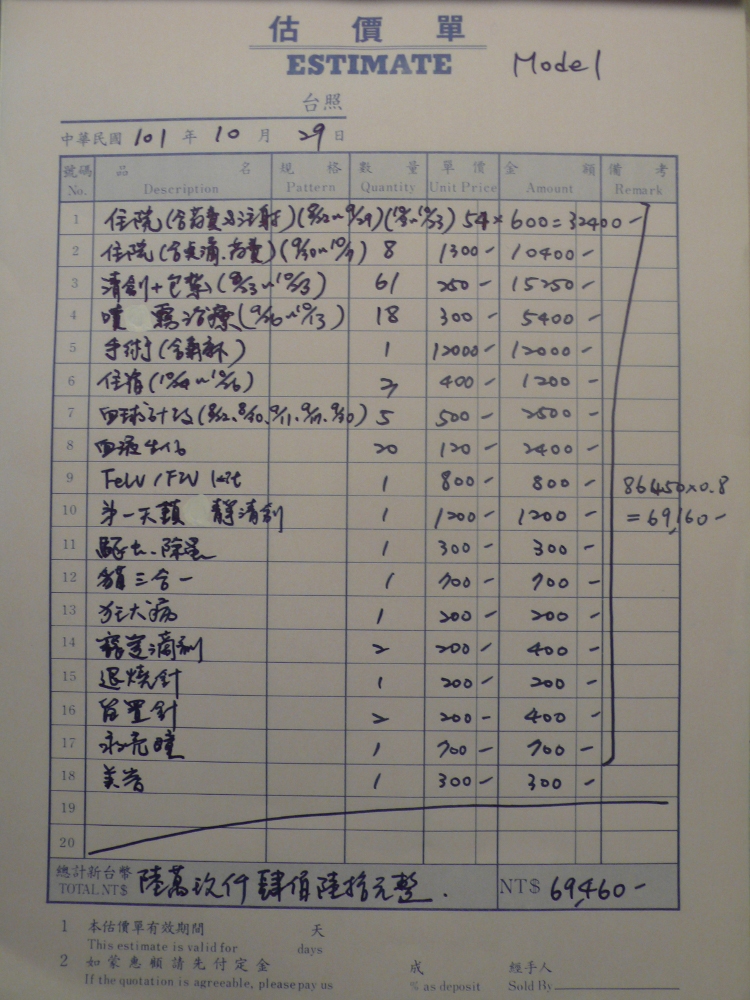 估價單
ESTIMATE
Model
台照
中華民國 101 年 10 月 29 日
號碼 品名 規格 數量 單價 金額 備考
No. Description Pattern Quantity Unit Price Amount Remark
1 住院(含藥費及注射)(8/22~9/29)(10/8~10/23) 54×600=32400-
2 住院(含點滴.藥費)(9/30~10/7) 8 1300- 10400-
3 清創+包紮 61 250- 15250-
4 噴 霧治療 18 300- 5400-
5 手術(含麻醉) 1 12000- 12000-
6 住宿 3 400- 1200-
7 血球計數 5 500- 2500-
8 血液生化 20 120- 2400-
9 FeLV/FIV test 1 800- 800-
10 第一天鎮 靜清創 1 1200- 1200-
11 驅虫.除蚤 1 300- 300-
12 貓三合一 1 700- 700-
13 狂犬病 1 200- 200-
14 2 200- 400-
15 退燒針 1 200- 200-
16 留置針 2 200- 400-
17 1 700- 700-
18 美容 1 300- 300-
86450×0.8
=69,160-
19
20
總計新台幣 陸萬玖仟肆佰陸拾元整.
TOTAL NT$ NT$ 69,460-
1 本估價單有效期間 天
This estimate is valid for days
2 如蒙惠顧請先付定金 成 經手人
If the quotation is agreeable, please pay us % as deposit Sold By